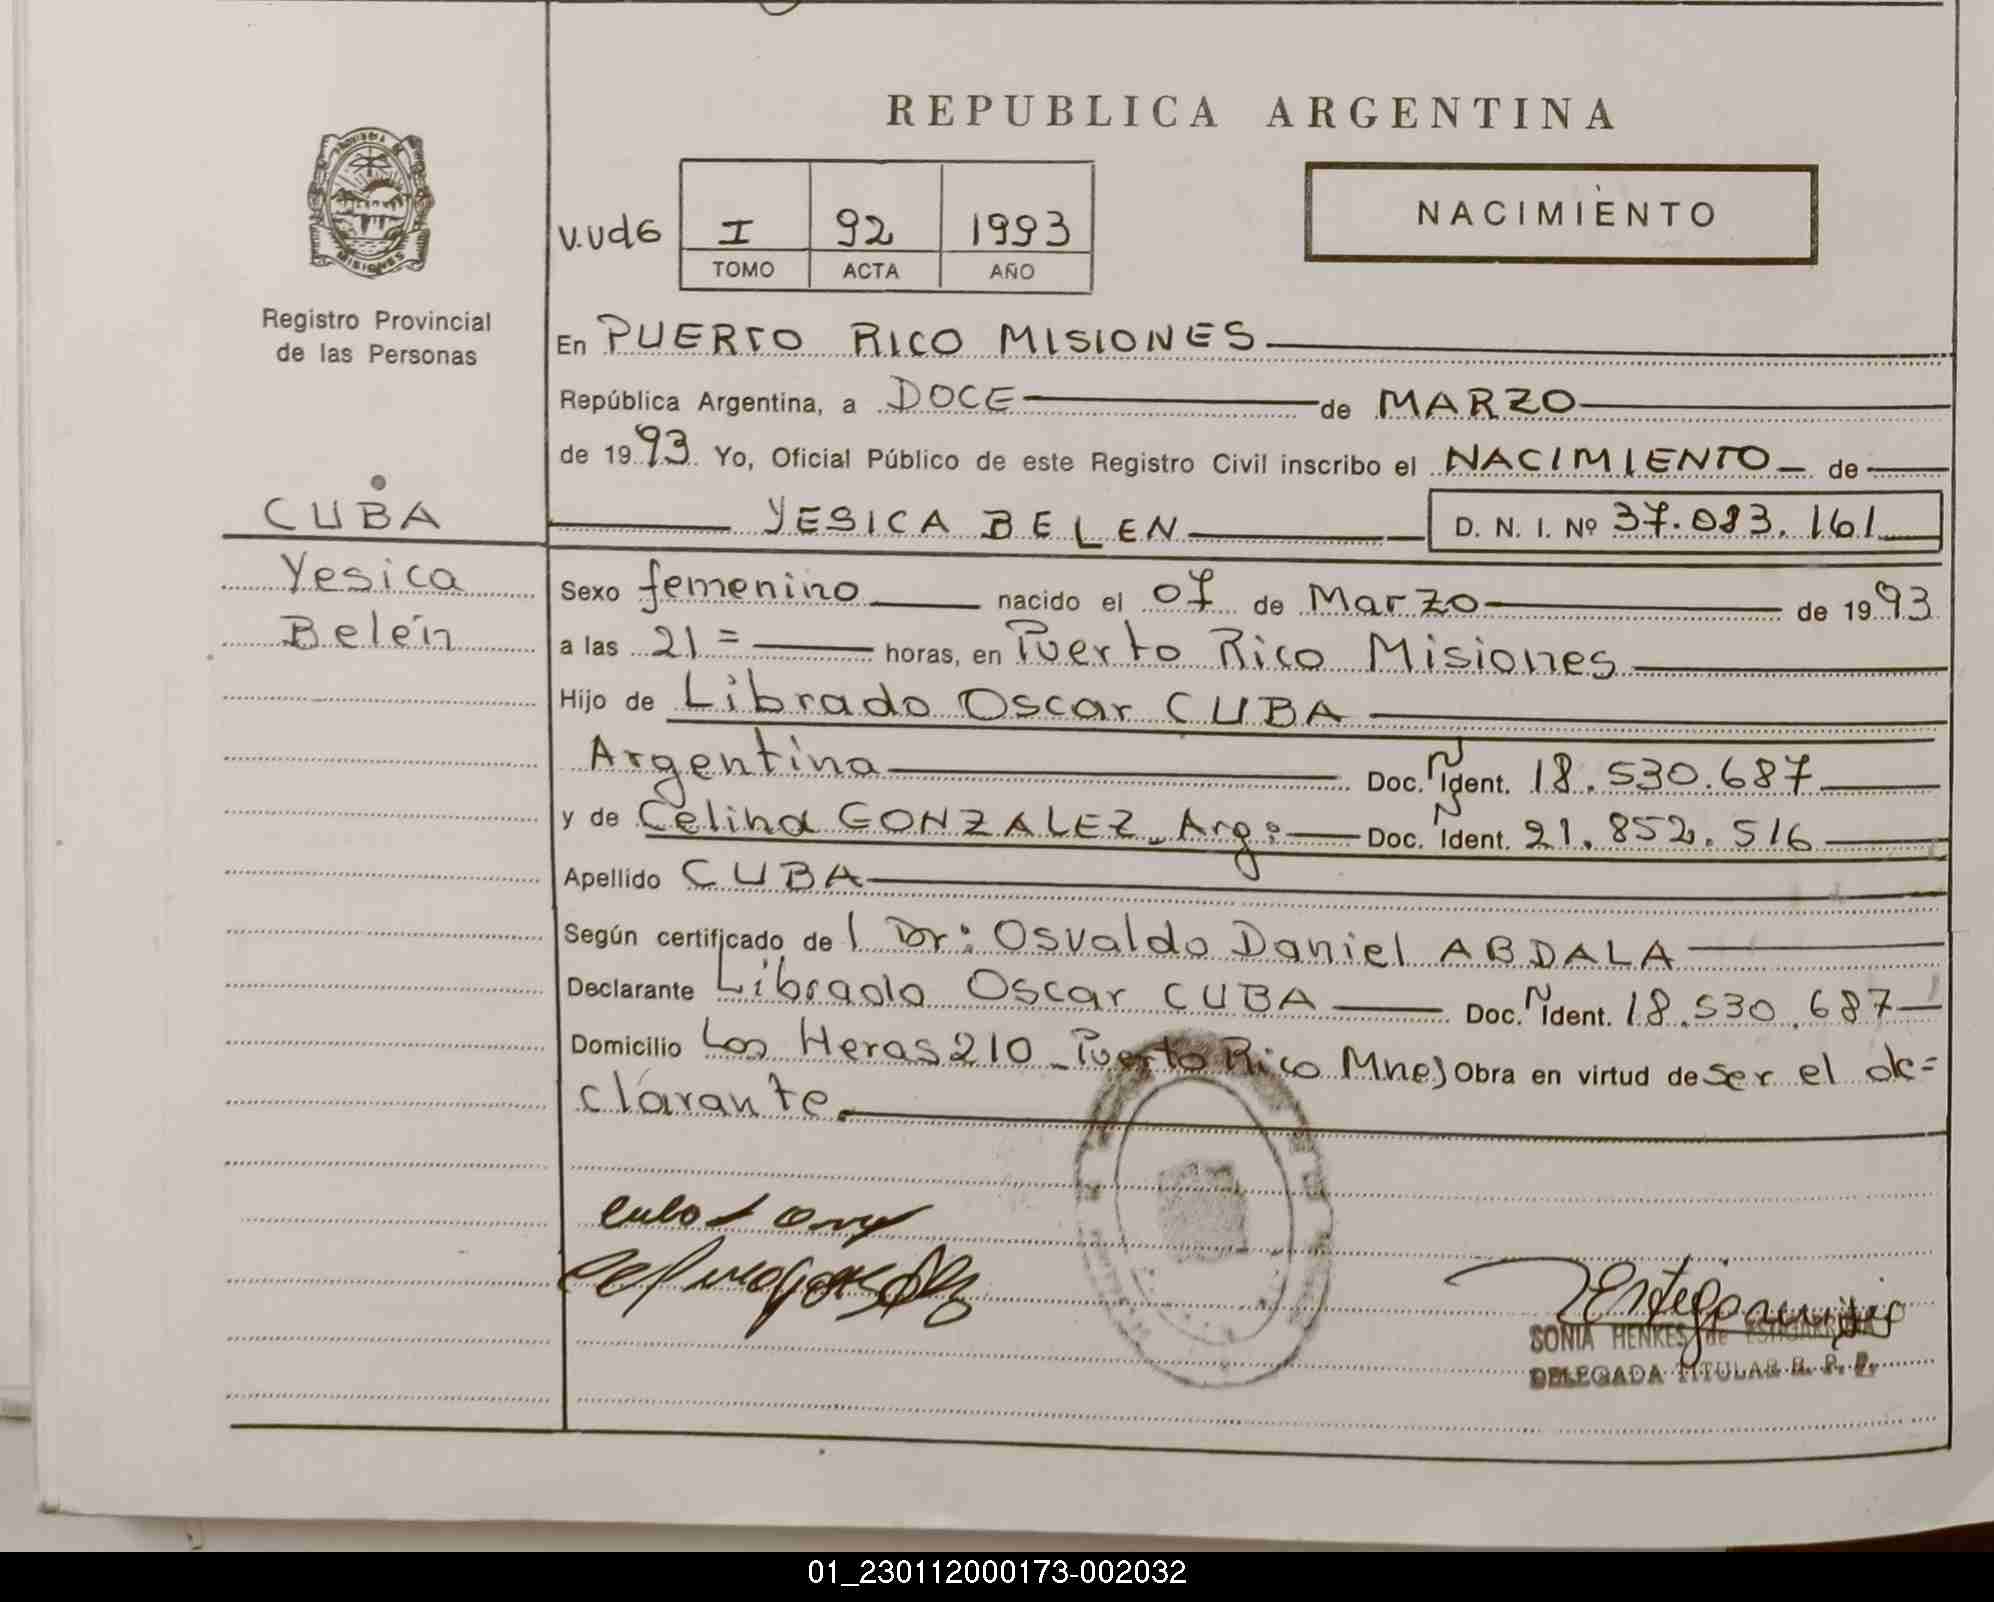 REPUBLICA ARGENTINA
PROVINCIA DE
MISIONES
Registro Provincial
de las Personas
CUBA
Yesica
Belén
NACIMIENTO
I 92 1993
TOMO ACTA AÑO
En PUERTO RICO MISIONES
República Argentina, a DOCE de MARZO
de 1993 Yo, Oficial Público de este Registro Civil inscribo el NACIMIENTO de
YESICA BELEN D. N. I. Nº 37.083.161
Sexo femenino nacido el 07 de Marzo de 1993
a las 21= horas, en Puerto Rico Misiones
Hijo de Librado Oscar CUBA
Argentina Doc. N Ident. 18.530.687
y de Celina GONZALEZ_ Arg: Doc. N Ident. 21.852.516
Apellido CUBA
Según certificado de l Dr: Osvaldo Daniel ABDALA
Declarante Librado Oscar CUBA Doc. N Ident. 18.530.687
Domicilio Las Heras 210_ Puerto Rico Mnes Obra en virtud de ser el de=
clarante
SONIA HENKES de
DELEGADA TITULAR R. P. P.
01_230112000173-002032